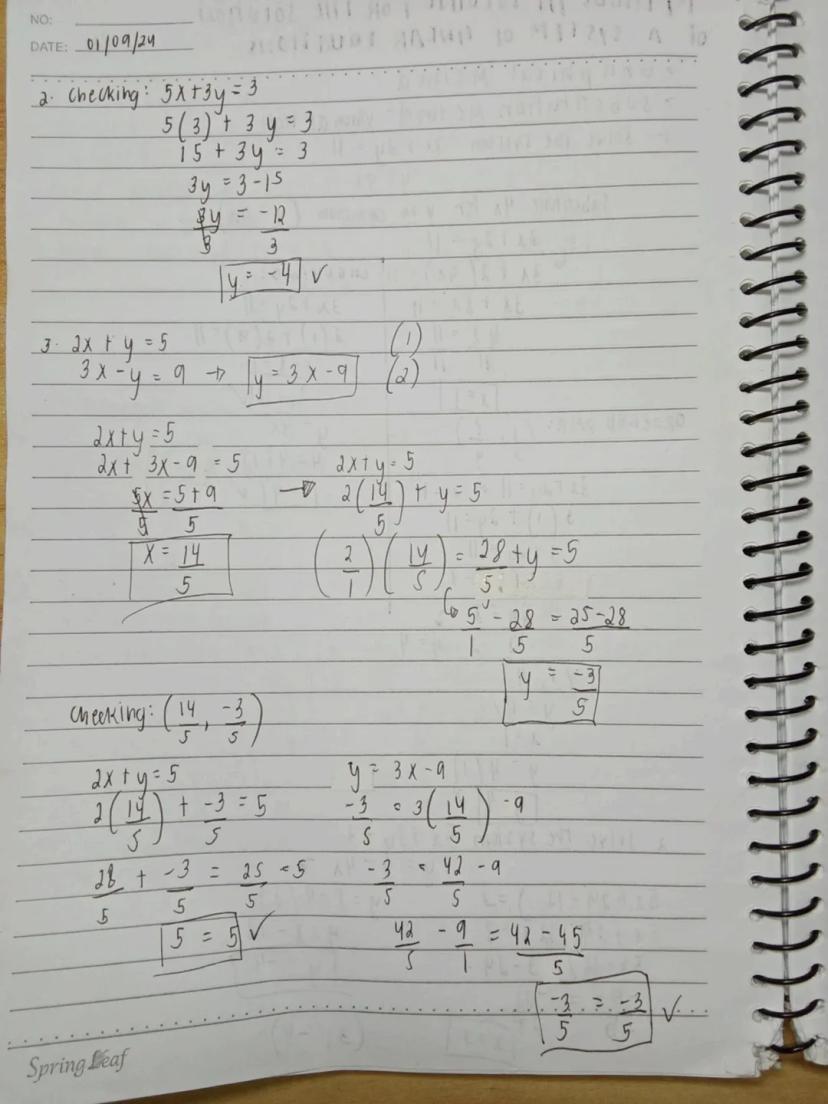 NO:
DATE: 01/09/24
2. Checking: 5x+3y=3
5(3) + 3y = 3
15 + 3y = 3
3y = 3-15
3y/3 = -12/3
y = -4 ✓
3. 2x + y = 5 (1)
3x - y = 9 → y = 3x-9 (2)
2x+y=5
2x+ 3x-9 = 5
5x/5 = 5+9/5
x = 14/5
→ 2x+y=5
2(14/5) + y = 5
(2/1)(14/5) = 28/5 + y = 5
↳ 5/1 - 28/5 = 25-28/5
y = -3/5
Checking: (14/5, -3/5)
2x+y=5
2(14/5) + -3/5 = 5
28/5 + -3/5 = 25/5 = 5
5 = 5 ✓
y = 3x-9
-3/5 = 3(14/5) -9
-3/5 = 42/5 - 9
42/5 - 9/1 = 42-45/5
-3/5 = -3/5 ✓
Spring Leaf